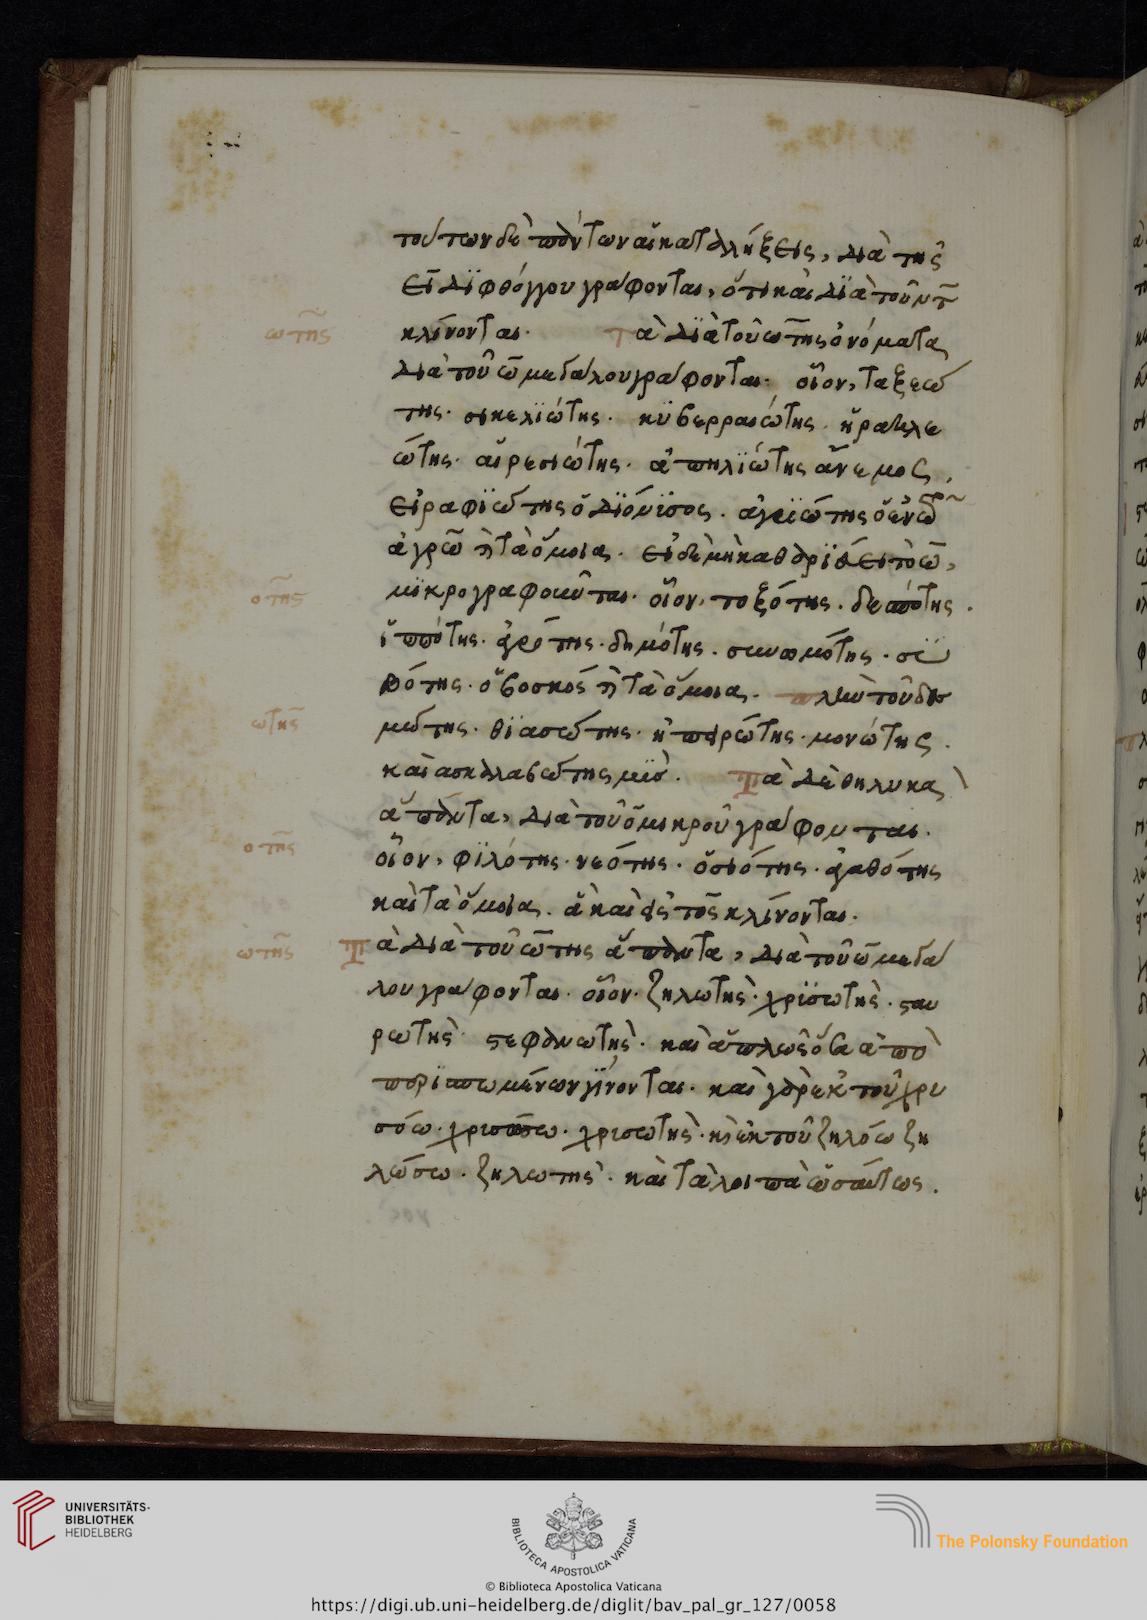 τούτων δὲ πάντων αἱ καταλήξεις, διὰ τῆς
ει διφθόγγου γράφονται, ὅτι καὶ διὰ τοῦ ντ
ωτης
κλίνονται. τὰ διὰ τοῦ ωτης ὀνόματα
διὰ τοῦ ω μεγάλου γράφονται. οἷον, ταξεώ
της. σικελϊώτης. κϋβερραιώτης. ἡρακλε
ώτης. αἱρεσιώτης. ἀπηλϊώτης ἄνεμος.
εἰραφϊώτης ὁ διόνϋσος. ἀγρϊώτης ὁ ἐν τῶ
ἀγρῶ καὶ τὰ ὅμοια. εἰ δὲ μὴ καθαρϊεύει τὸ ω,
οτης
μϊκρογραφοῦνται. οἷον, τοξότης. δεσπότης.
ἱππότης. ἀγρότης. δημότης. συνωμότης. σϋ
βότης. ὁ βοσκός καὶ τὰ ὅμοια. πλὴν τοῦ δε
ωτης
μώτης. θϊασώτης. ἠπειρώτης. μονώτης.
καὶ ἀσκαλαβώτης μῦς. Τὰ δὲ θηλυκὰ
ἅπαντα, διὰ τοῦ ο μικροῦ γράφονται.
οτης
οἷον, φϊλότης. νεότης. ὁσιότης. ἀγαθότης
καὶ τὰ ὅμοια. ἃ καὶ εἰς τος κλίνονται.
ωτης
Τὰ διὰ τοῦ ωτης ἅπαντα, διὰ τοῦ ω μεγά
λου γράφονται. οἷον. ζηλωτὴς. χρϊσωτὴς. σταυ
ρωτὴς. στεφανωτὴς. καὶ ἁπλῶς ὅσα ἀπὸ
περϊσπωμένων γίνονται. καὶ γὰρ ἐκ τοῦ χρυ
σόω. χρισώσω. χρισωτὴς. καὶ ἐκ τοῦ ζηλόω ζη
λώσω. ζηλωτὴς. καὶ τὰ λοιπὰ ὡσαύτως.
UNIVERSITÄTS-
BIBLIOTHEK
HEIDELBERG
BIBLIOTECA APOSTOLICA VATICANA
The Polonsky Foundation
© Biblioteca Apostolica Vaticana
https://digi.ub.uni-heidelberg.de/diglit/bav_pal_gr_127/0058